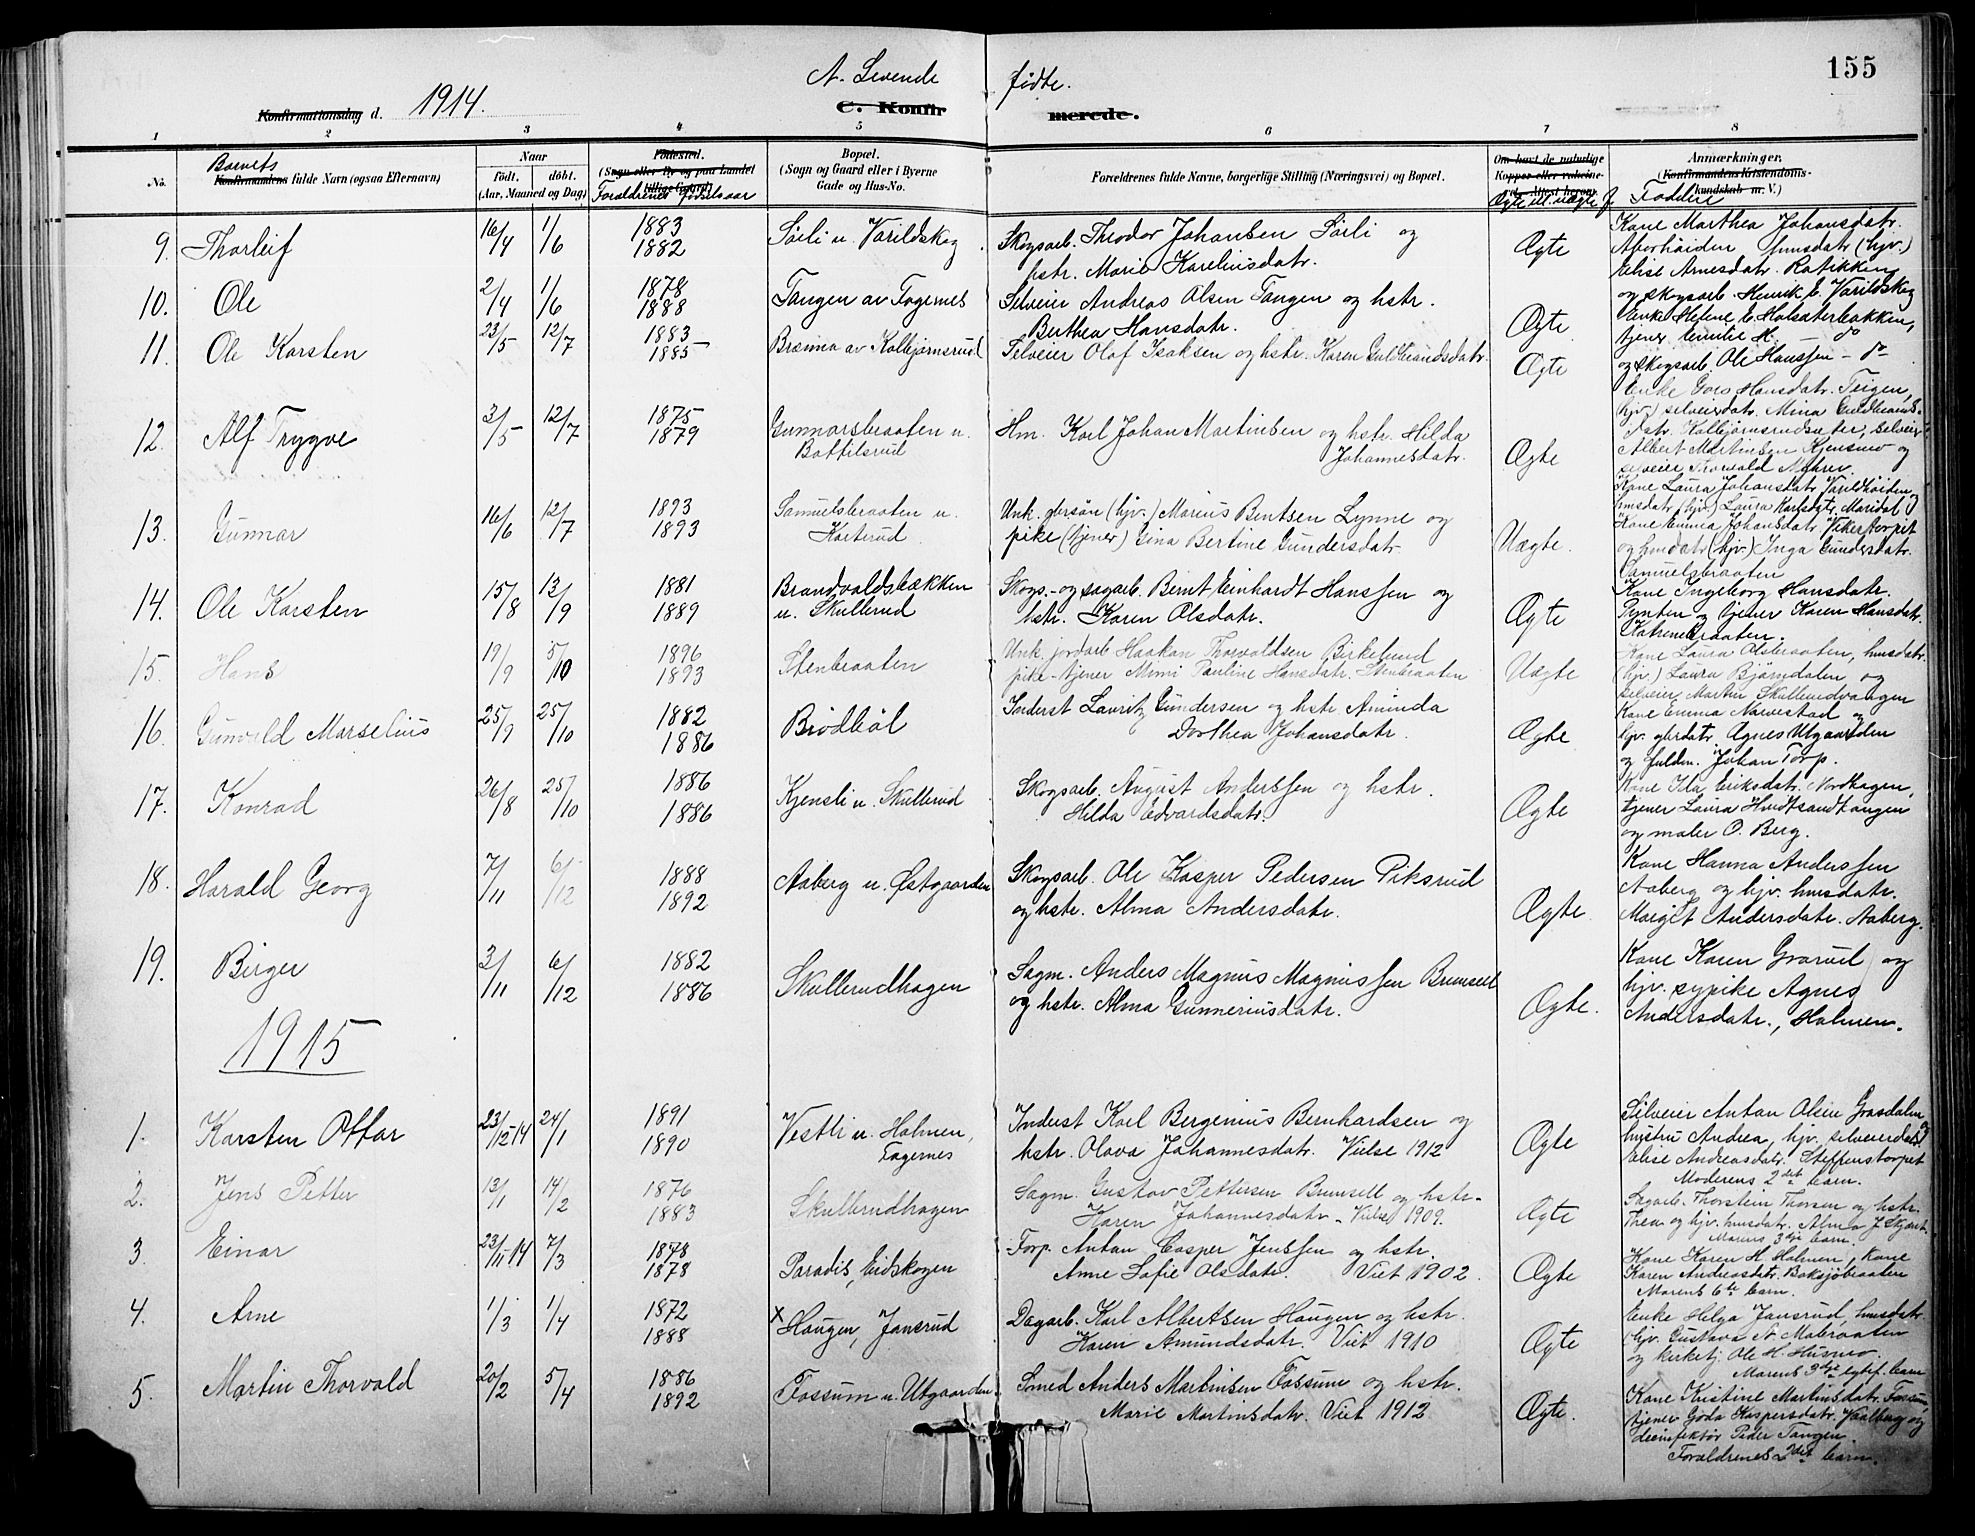 155
A. Levende fødte.
Konfirmationsdag d. 1914.
C. Konfirmerede.
1 2 3 4 5 6 7 8
No.
Barnets
Konfirmandens fulde Navn (ogsaa Efternavn)
Naar
født. døbt.
(Aar, Maaned og Dag)
Fødested.
(Sogn eller By og paa Landet tillige Gaard)
Forældrenes fødselsaar
Bopæl.
(Sogn og Gaard eller i Byerne
Gade og Hus-No.
Forældrenes fulde Navne, borgerlige Stilling (Næringsvei) og Bopæl.
Om havt de naturlige
Kopper eller vaksine-
Ægte ell. uægte f.
Anmærkninger.
(Konfirmandens Kristendoms-
kundskab m. V.)
Faddere
9. Thorleif 16/4 1/6 1883 1882 Sörli u. Varildskog. Skogsarb. Theodor Johansen Sörli og
hstr. Marie Kareliusdatr. Ægte
Kone Marthea Johansdatr.
Aborhöiden husdatr (hjv.)
Elise Arnesdatr. Ratikken
og skogsarb. Henrik E. Varildskog
10. Ole 2/4 1/6 1878 1888 Tangen av Fagernes Selveier Andreas Olsen Tangen og hstr.
Berthea Hansdatr. Ægte
Enke Helene E. Holsæterbakken,
tjener Emilie H. — do
og skogsarb. Ole Hanssen — do
11. Ole Karsten 23/5 12/7 1883 1885 Brænna av Kolbjørnsrud Selveier Olof Isaksen og hstr. Karen Guldbrandsdatr. Ægte
Enke Goro Hansdatr. Teigen,
(hjv.) selveierdatr. Mina Guldbrands-
datr. Kolbjørnsrudsæter, selveier
Albert Martinsen Kjensmo og
selveier Thorvald Mohrer.
12. Alf Trygve 3/5 12/7 1875 1879 Gunnarsbraaten u.
Bottilsrud
Hm. Karl Johan Martinsen og hstr. Hilda
Johannesdatr. Ægte
Kone Laura Johansdatr Varildhöiden og
husdatr (hjv.) Laura Karlsdatr. Maridal
13. Gunnar 16/6 12/7 1893 1893 Samuelsbraaten u.
Karterud
Unk. gbrsön (hjv.) Marius Bentsen Lynne og
pike (tjener) Gina Bertine Gundersdatr. Uægte.
Kone Emma Johansdatr Vikertorpet
og husdatr (hjv.) Inga Gundersdatr.
Samuelsbraaten
14. Ole Karsten 15/8 13/9 1881 1889 Brandvoldsbækken
u. Skullerud
Skogs- og sagarb. Bernt Einhardt Hanssen og
hstr. Karen Olsdatr. Ægte
Kone Ingeborg Hansdatr.
Pynten og tjener Karen Hansdatr.
Katrinebraaten.
15. Hans 19/9 5/10 1896 1893 Stenbraaten
Unk. jordarb. Haakan Thorvaldsen Birkelund
pike-tjener Mimi Pauline Hansdatr. Stenbraaten Uægte
Kone Laura Olsbraaten, husdatr.
(hjv.) Laura Bjørndalen og
selveier Martin Skullerudvangen
16. Gunvald Marselius 25/9 25/10 1882 1886 Brödböl
Inderst Lauritz Gundersen og hstr. Aminda
Dorthea Johansdatr. Ægte
Kone Emma Navestad og
hjv. gbrdatr. Agnes Utgaarden
og fuldm. Johan Torp.
17. Konrad 26/8 25/10 1886 1886 Kjensli u. Skullerud
Skogsarb. August Anderssen og hstr.
Hilda Edvardsdatr. Ægte
Kone Ida Eriksdatr. Nordhagen,
tjener Laura Huntsandtangen
og maler O. Berg.
18. Harald Georg 7/11 6/12 1888 1892 Aaberg u. Østgaarden
Skogsarb. Ole Kasper Pedersen Piksrud
og hstr. Alma Andersdatr. Ægte.
Kone Hanna Anderssen
Aaberg og hjv. husdatr.
Margit Andersdatr. Aaberg.
19. Birger 3/11 6/12 1882 1886 Skullerudhagen
Sagm. Anders Magnus Magnussen Brunsell
og hstr. Alma Gunneriusdatr. Ægte.
Kone Karen Grarud og
hjv. sypike Agnes
Andersdatr., Holmen.
1915
1. Karsten Ottar 23/12-14 24/1 1891 1890 Vestli u. Holmen,
Fagernes
Inderst Karl Bergenius Bernhardsen og
hstr. Olava Johannesdatr. Vielse 1912 Ægte
Selveier Anton Olsen Grasdalen og
hustru Andrea, hjv. selveierdatr.
Elise Andreasdatr. Steffenstorpet
Moderens 2det barn.
2. Jens Petter 13/1 14/2 1876 1883 Skullerudhagen
Sagm. Gustav Pettersen Brunsell og hstr.
Karen Johannesdatr. Vielse 1909. Ægte
Sagarb. Thorstein Thorsen og hstr.
Thea og hjv. husdatr. Alma J. Skjæret.
Morens 3die barn.
3. Einar 23/11-14 7/3 1878 1878 Paradis, Eidskogen
Forp. Anton Casper Jenssen og hstr.
Anne Sofie Olsdatr. Viet 1902. Ægte
Kone Karen H. Holmen, kone
Karen Andreasdatr. Baksjøbraaten
Morens 6te barn.
4. Arne 1/3 1/4 1872 1888 x Haugen, Jansrud
Dagarb. Karl Albertsen Haugen og hstr.
Karen Amundsdatr. Viet 1910 Ægte
Enke Helga Jansrud, husdatr.
(hjv. Gustava N. Mobraaten
og kirketj. Ole H. Husmo.
Morens 3die egtef. barn
5. Martin Thorvald 20/2 5/4 1886 1892 Fossum u. Utgaarden.
Smed Anders Martinsen Fossum og hstr.
Marie Martinsdatr. Viet 1912 Ægte.
Kone Kristine Martinsdatr. Fossum,
tjener Goda Kaspersdatr. Vaalberg og
desinfektör Peder Tangen.
Forældrenes 2det barn.